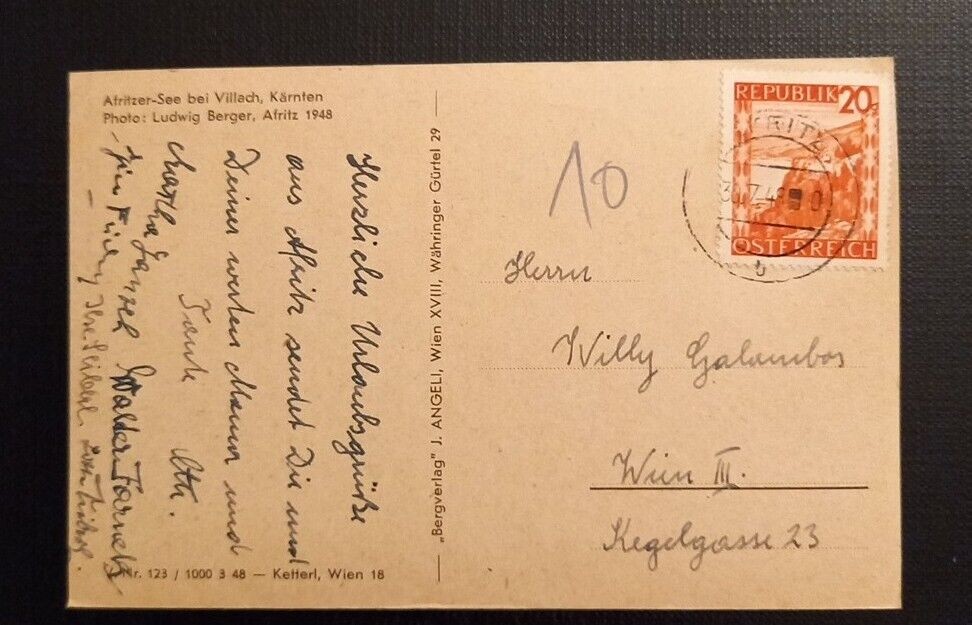 Afritzer-See bei Villach, Kärnten
Photo: Ludwig Berger, Afritz 1948
Herzliche Urlaubsgrüße
aus Afritz sendet Dir und
Deiner werten Mama und
Tante
Walter
Nr. 123 / 1000 3 48 — Ketterl, Wien 18
„Bergverlag” J. ANGELI, Wien XVIII, Währinger Gürtel 29
10
REPUBLIK 20
ÖSTERREICH
Herrn
Willy Galambos
Wien III.
Kegelgasse 23